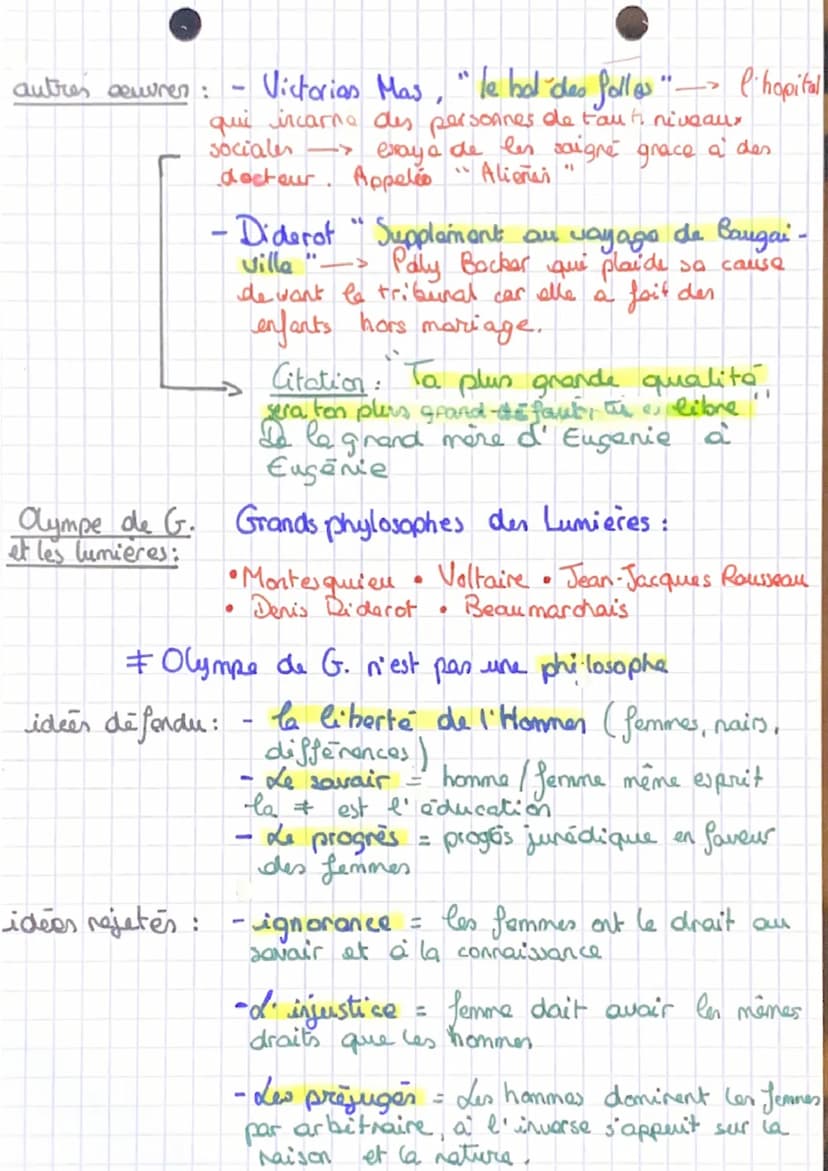 autres oeuvres : - Victorias Mas, "le bal des folles" —> l'hopital
qui incarne des personnes de tout niveaux
sociales —> essaye de les soigné grace à des
docteur. Appelés "Alienés"
- Diderot "Supplement au voyage de Bougai-
ville" —> Polly Backer qui plaide sa cause
devant le tribunal car elle a fait des
enfants hors mariage.
Citation : "Ta plus grande qualité
sera ton plus grand défaut, tu es libre"
De la grand mère d'Eugenie à
Eugénie
Olympe de G. Grands phylosophes des Lumieres :
et les lumières :
• Montesquieu • Voltaire • Jean-Jacques Rousseau
• Denis Diderot • Beaumarchais
≠ Olympe de G. n'est pas une philosophe
ideés défendu : - la liberté de l'Hommes (femmes, noirs,
différences)
- Le savoir = homme/femme même esprit
la ≠ est l'éducation
- Le progrès = progés jurédique en faveur
des femmes
idées rejetés : - ignorance = les femmes ont le droit au
savoir et à la connaissance
- L'injustice = femme doit avoir les mêmes
droits que les hommes
- Les préjugés = Les hommes dominent les femmes
par arbitraire, à l'inverse s'appuit sur la
raison et la nature.